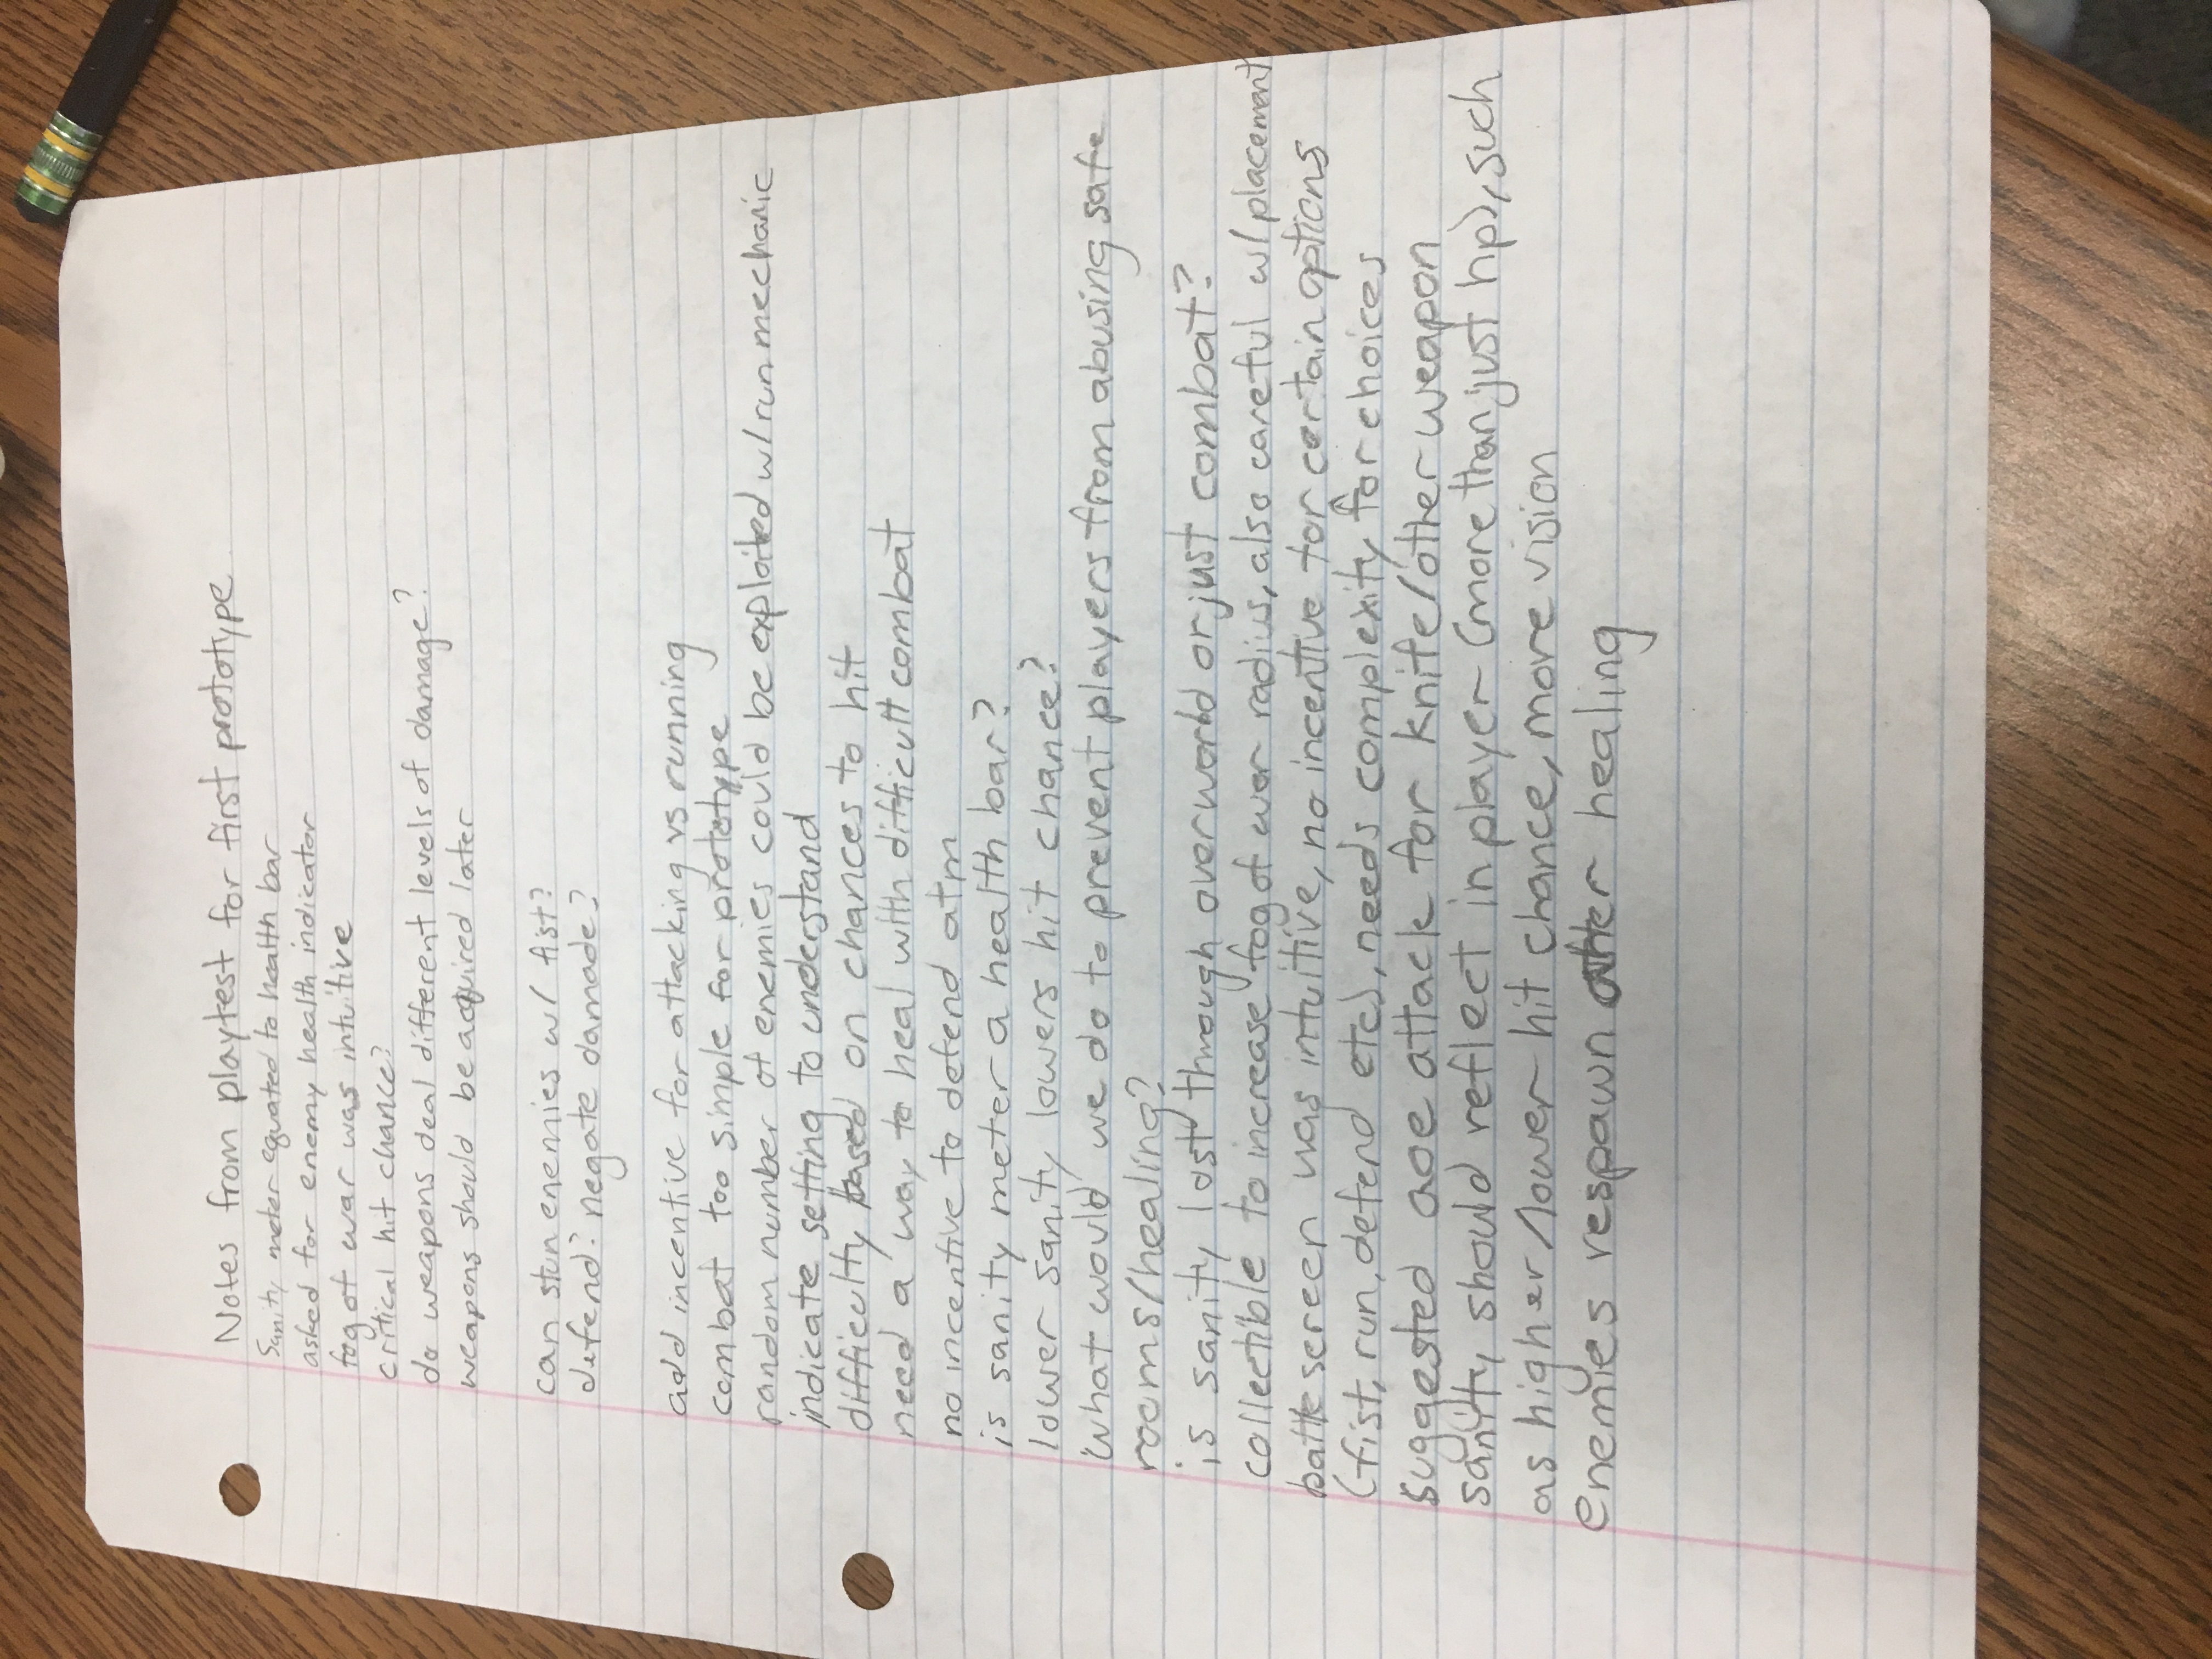 Notes from playtest for first prototype
Sanity meter equated to health bar
asked for enemy health indicator
fog of war was intuitive
critical hit chance?
do weapons deal different levels of damage?
weapons should be acquired later
can stun enemies w/ fist?
defend? negate damade?
add incentive for attacking vs running
combat too simple for prototype
random number of enemies could be exploited w/ run mechanic
indicate setting to understand
difficulty based on chances to hit
need a way to heal with difficult combat
no incentive to defend atm
is sanity meter a health bar?
lower sanity lowers hit chance?
what would we do to prevent players from abusing safe
rooms/healing?
is sanity lost through overworld or just combat?
collectible to increase fog of war radius, also careful w/ placement
battle screen was intuitive, no incentive for certain options
(fist, run, defend etc), needs complexity for choices
suggested aoe attack for knife/other weapon
sanity should reflect in player (more than just hp), such
as higher/lower hit chance, more vision
enemies respawn after healing